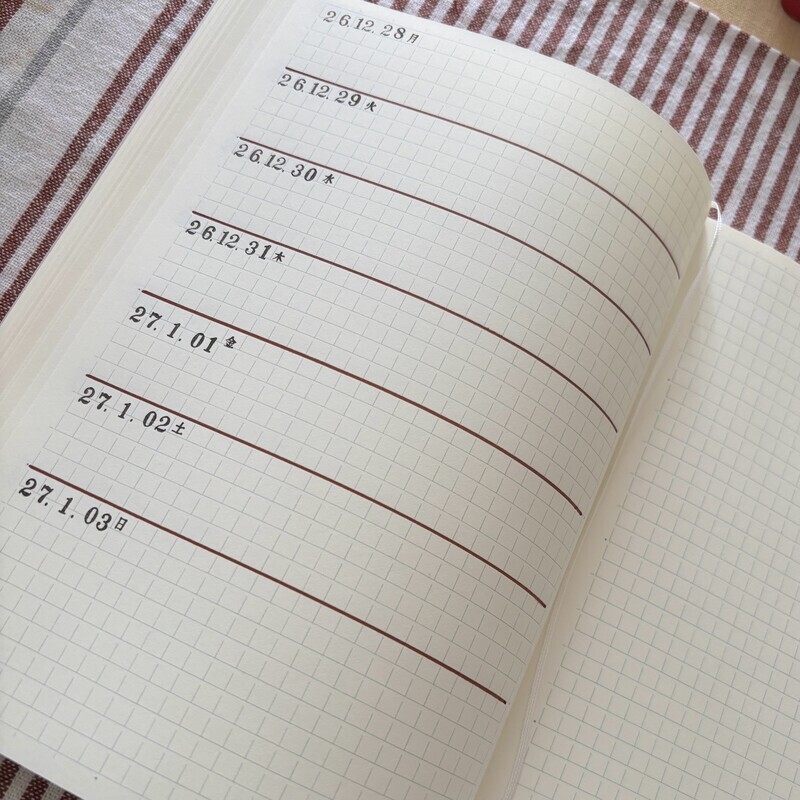 26.12.28月
26.12.29火
26.12.30水
26.12.31木
27.1.01金
27.1.02土
27.1.03日